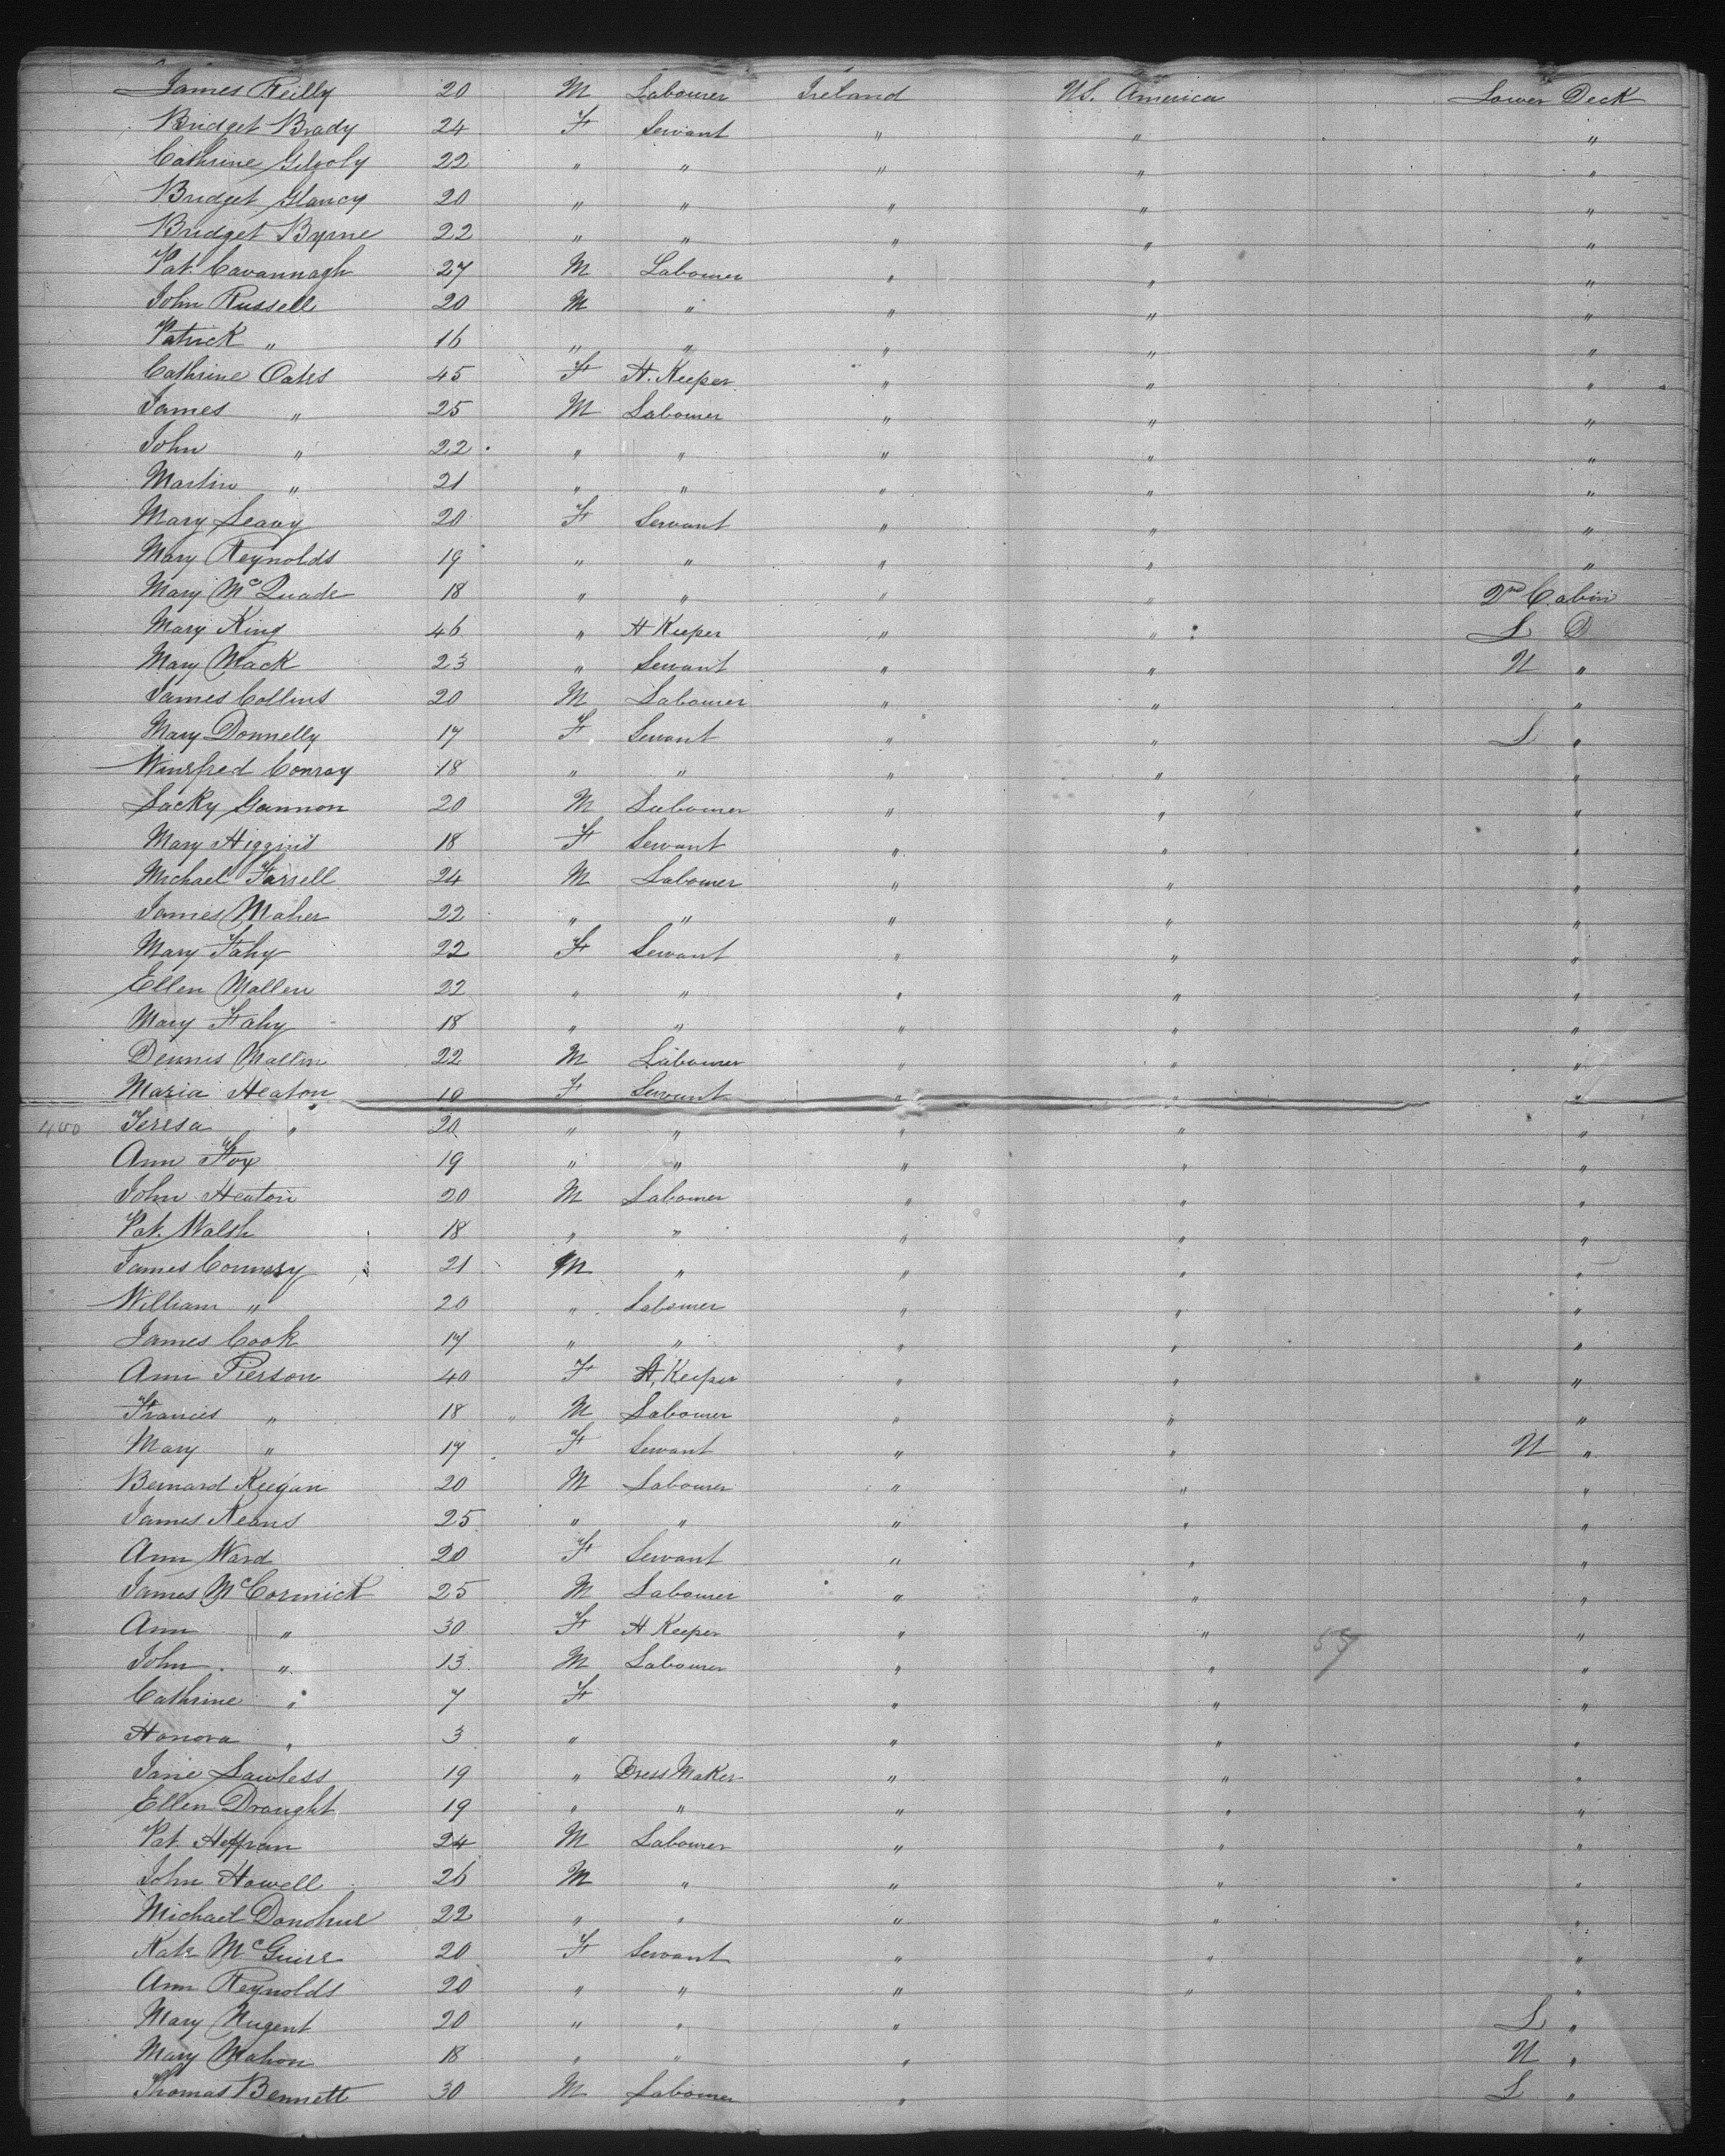 James Reilly 20 M Labourer Ireland US. America Lower Deck
Bridget Brady 24 F Servant " " "
Cathrine Gilooly 22 " " " " "
Bridget Glancy 20 " " " " "
Bridget Byrne 22 " " " " "
Pat. Cavannagh 27 M Labourer " " "
John Russell 20 M " " " "
Patrick " 16 " " " " "
Cathrine Oates 45 F H. Keeper " " "
James " 25 M Labourer " " "
John " 22 " " " " "
Martin " 21 " " " " "
Mary Leavy 20 F Servant " " "
Mary Reynolds 19 " " " " "
Mary McQuade 18 " " " " 2nd Cabin
Mary King 46 " H Keeper " " L D
Mary Mack 23 " Servant " " U "
James Collins 20 M Labourer " " "
Mary Donnelly 17 F Servant " " L "
Winefred Conroy 18 " " " " "
Lacky Gannon 20 M Labourer " " "
Mary Higgins 18 F Servant " " "
Michael Farrell 24 M Labourer " " "
James Maher 22 " " " " "
Mary Fahy 22 F Servant " " "
Ellen Mallen 22 " " " " "
Mary Fahy 18 " " " " "
Dennis Mallin 22 M Labourer " " "
Maria Heaton 19 F Servant " " "
400 Teresa " 20 " " " " "
Ann Fox 19 " " " " "
John Heaton 20 M Labourer " " "
Pat. Walsh 18 " " " " "
James Connery 21 M " " " "
William " 20 " Labourer " " "
James Cook 17 " " " " "
Ann Pierson 40 F H. Keeper " " "
Francis " 18 M Labourer " " "
Mary " 17 F Servant " " U "
Bernard Keegan 20 M Labourer " " "
James Keans 25 " " " " "
Ann Ward 20 F Servant " " "
James McCormick 25 M Labourer " " "
Ann " 30 F H Keeper " " "
John " 13 M Labourer " " "
57
Cathrine " 7 F " " "
Honora " 3 " " " "
Jane Lawless 19 " Dress Maker " " "
Ellen Draught 19 " " " " "
Pat Heffran 24 M Labourer " " "
John Howell 26 M " " " "
Michael Donohue 22 " " " " "
Kate McGuire 20 F Servant " " "
Ann Reynolds 20 " " " " "
Mary Nugent 20 " " " L "
Mary Mahon 18 " " " U "
Thomas Bennett 30 M Labourer " L "